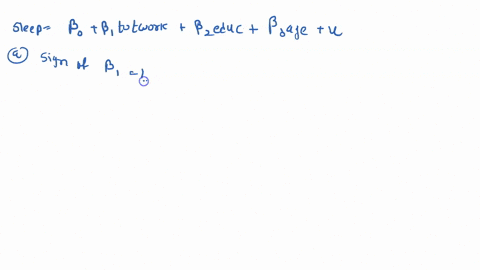 Sleep = β₀ + β₁ totwork + β₂ educ + β₃ age + u
ⓐ Sign of β₁ =